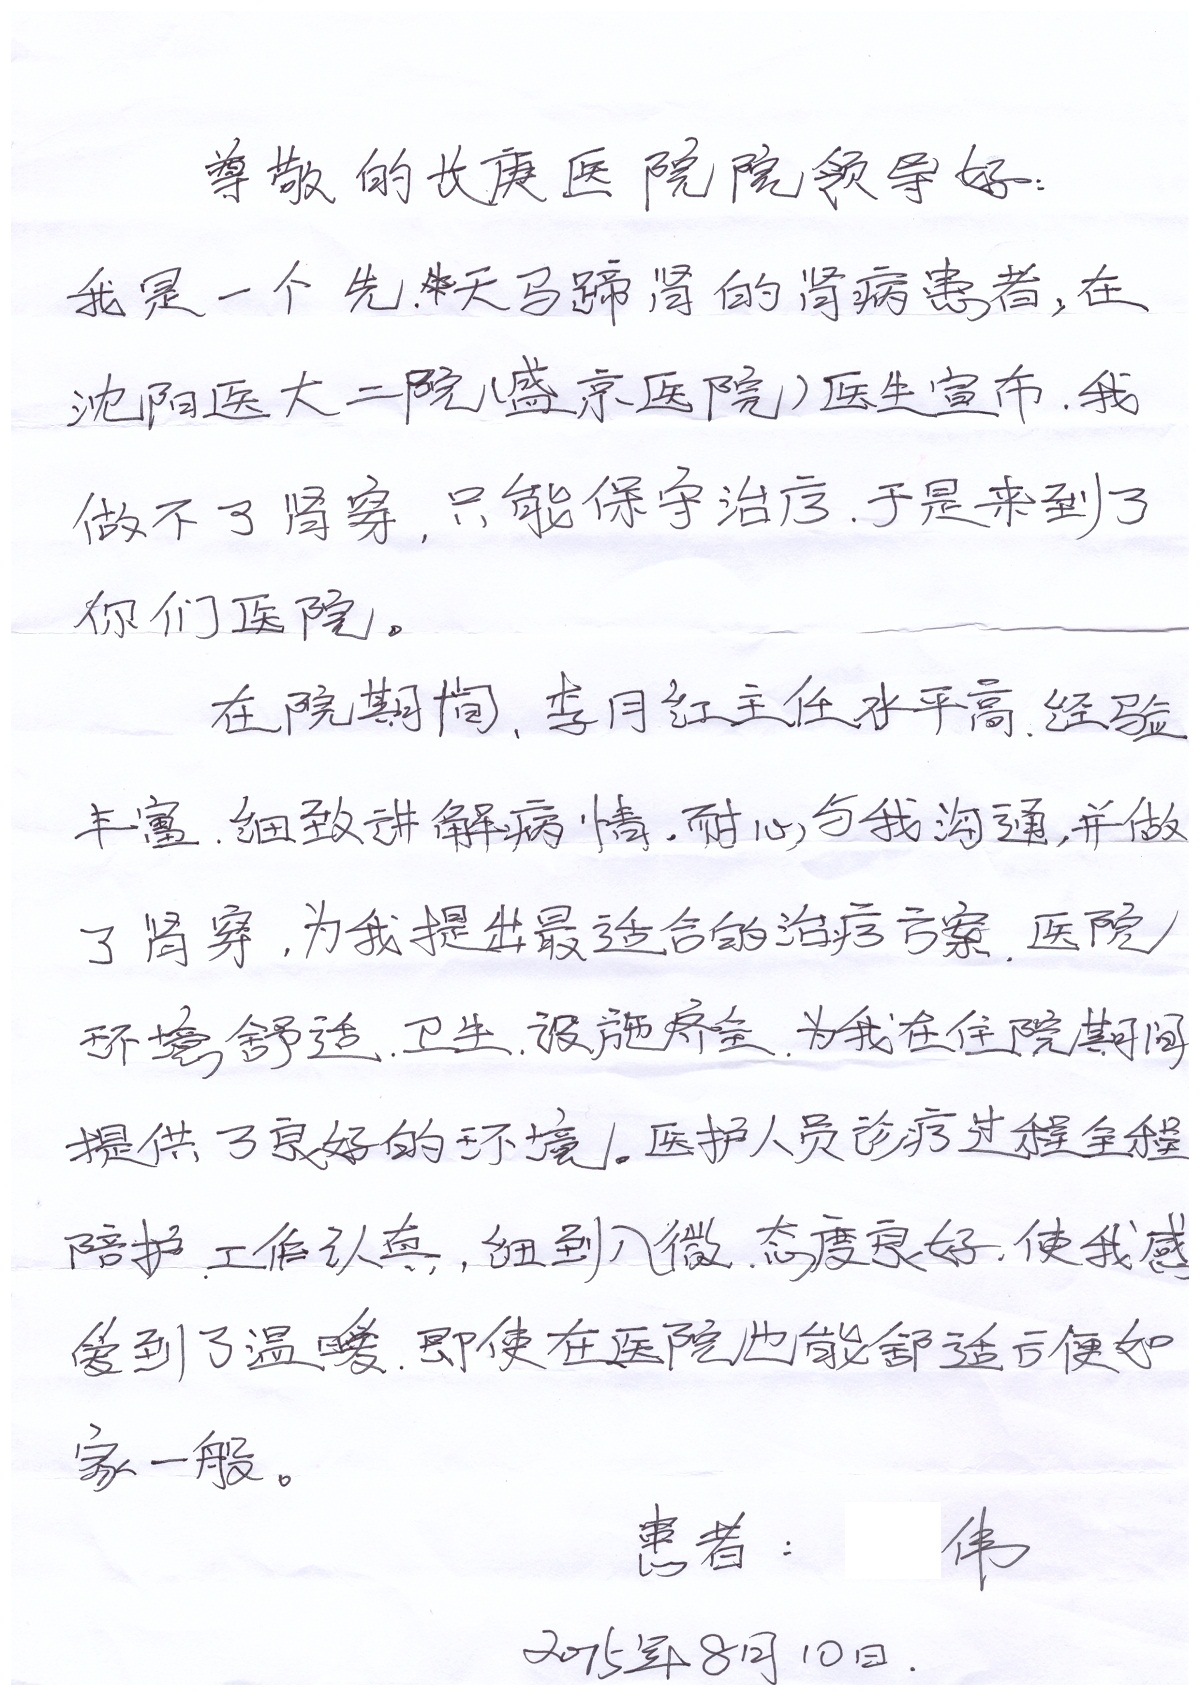 尊敬的长庚医院院领导好:
我是一个先.天马蹄肾的肾病患者,在
沈阳医大二院(盛京医院)医生宣布.我
做不了肾穿,只能保守治疗.于是来到了
你们医院。
在院期间,李月红主任水平高.经验
丰富.细致讲解病情.耐心与我沟通,并做
了肾穿,为我提出最适合的治疗方案.医院
环境舒适.卫生.设施齐全.为我在住院期间
提供了良好的环境。医护人员诊疗过程全程
陪护.工作认真,细到入微.态度良好.使我感
受到了温暖.即使在医院也能舒适方便如
家一般。
患者: 伟
2015年8月10日.